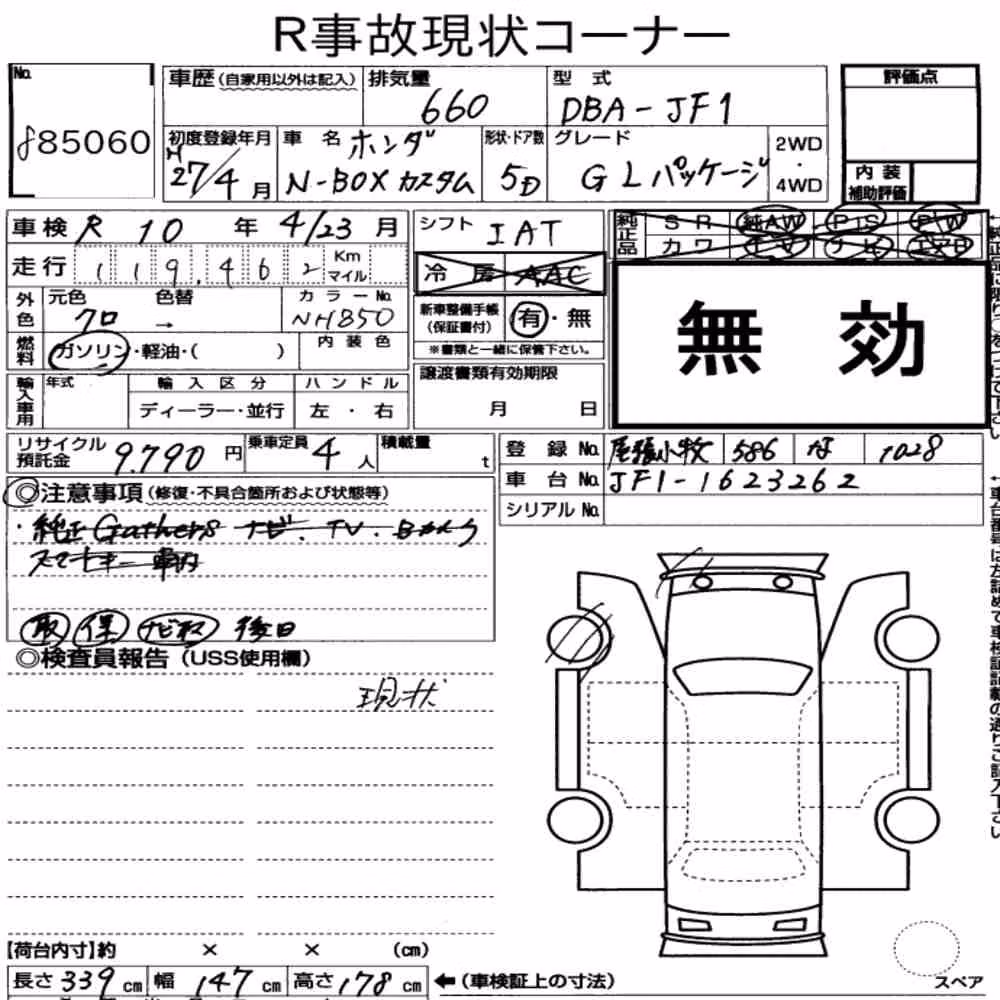 R事故現状コーナー
No.
885060
車歴(自家用以外は記入)
排気量
660
型式
DBA-JF1
評価点
初度登録年月
H27/4月
車名
ホンダ
N-BOXカスタム
形状・ドア数
5D
グレード
GLパッケージ
2WD
・
4WD
内装
補助評価
車検 R 10 年 4/23 月
走行 119,462 Km マイル
シフト
IAT
冷房 AAC
純正品
SR 純AW PIS PW
カワ TV ナビ エアB
無効
外色
元色
クロ
色替
→
カラーNo.
NH850
燃料
ガソリン・軽油・( )
内装色
新車整備手帳
(保証書付)
有・無
※書類と一緒に保管下さい。
輸入車用
年式
輸入区分
ディーラー・並行
ハンドル
左・右
譲渡書類有効期限
月 日
リサイクル
預託金
9.790 円
乗車定員
4 人
積載量
t
登録No. 尾張小牧 586 な 1028
車台No. JF1-1623262
シリアルNo.
◎注意事項(修復・不具合箇所および状態等)
・純正Gathersナビ.TV.Bカメラ
スマートキー車内
取 保 ナビ取 後日
◎検査員報告(USS使用欄)
現状
【荷台内寸】約 × × (cm)
長さ 339 cm 幅 147 cm 高さ 178 cm
←(車検証上の寸法)
スペア